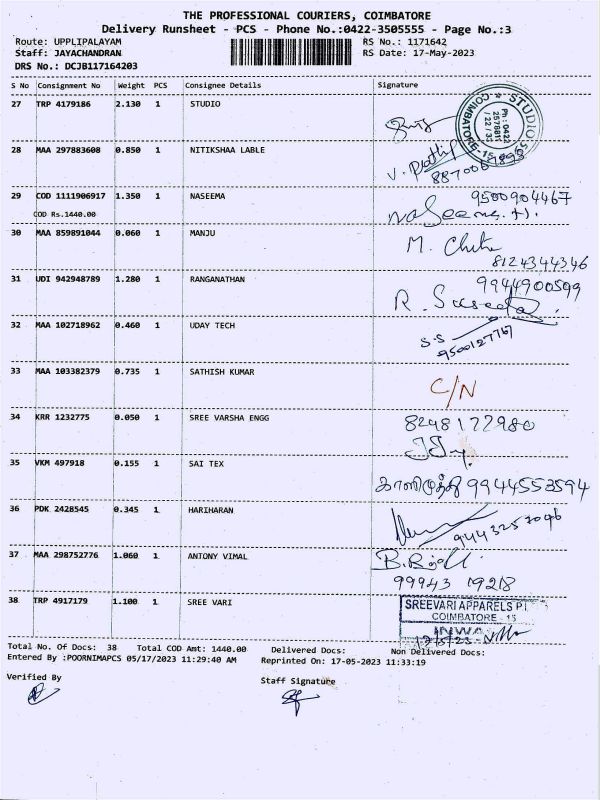 THE PROFESSIONAL COURIERS, COIMBATORE
Delivery Runsheet - PCS - Phone No.:0422-3505555 - Page No.:3
Route: UPPLIPALAYAM RS No.: 1171642
Staff: JAYACHANDRAN RS Date: 17-May-2023
DRS No.: DCJB117164203
S No Consignment No Weight PCS Consignee Details Signature
27 TRP 4179186 2.130 1 STUDIO
STUDIO
COIMBATORE-15
Ph : 0422
28 MAA 297883608 0.850 1 NITIKSHAA LABLE
29 COD 1111906917 1.350 1 NASEEMA 9500904467
COD Rs.1440.00
30 MAA 859891044 0.060 1 MANJU M. Chitra
8124344346
31 UDI 942948789 1.280 1 RANGANATHAN 9944900599
32 MAA 102718962 0.460 1 UDAY TECH S.S
9500127767
33 MAA 103382379 0.735 1 SATHISH KUMAR C/N
34 KRR 1232775 0.050 1 SREE VARSHA ENGG 8248172980
35 VKM 497918 0.155 1 SAI TEX காளிமுத்து 9944553594
36 PDK 2428545 0.345 1 HARIHARAN
37 MAA 298752776 1.060 1 ANTONY VIMAL
99943 19218
38 TRP 4917179 1.100 1 SREE VARI SREEVARI APPARELS P
COIMBATORE - 15
INWA
Total No. Of Docs: 38 Total COD Amt: 1440.00 Delivered Docs: Non Delivered Docs:
Entered By :POORNIMAPCS 05/17/2023 11:29:40 AM Reprinted On: 17-05-2023 11:33:19
Verified By Staff Signature